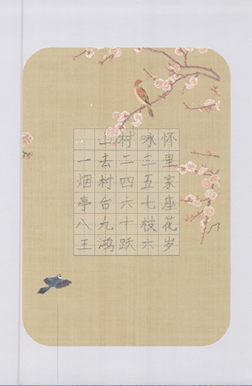 山村咏怀
一去二三里
烟村四五家
亭台六七座
八九十枝花
王鸿跃六岁